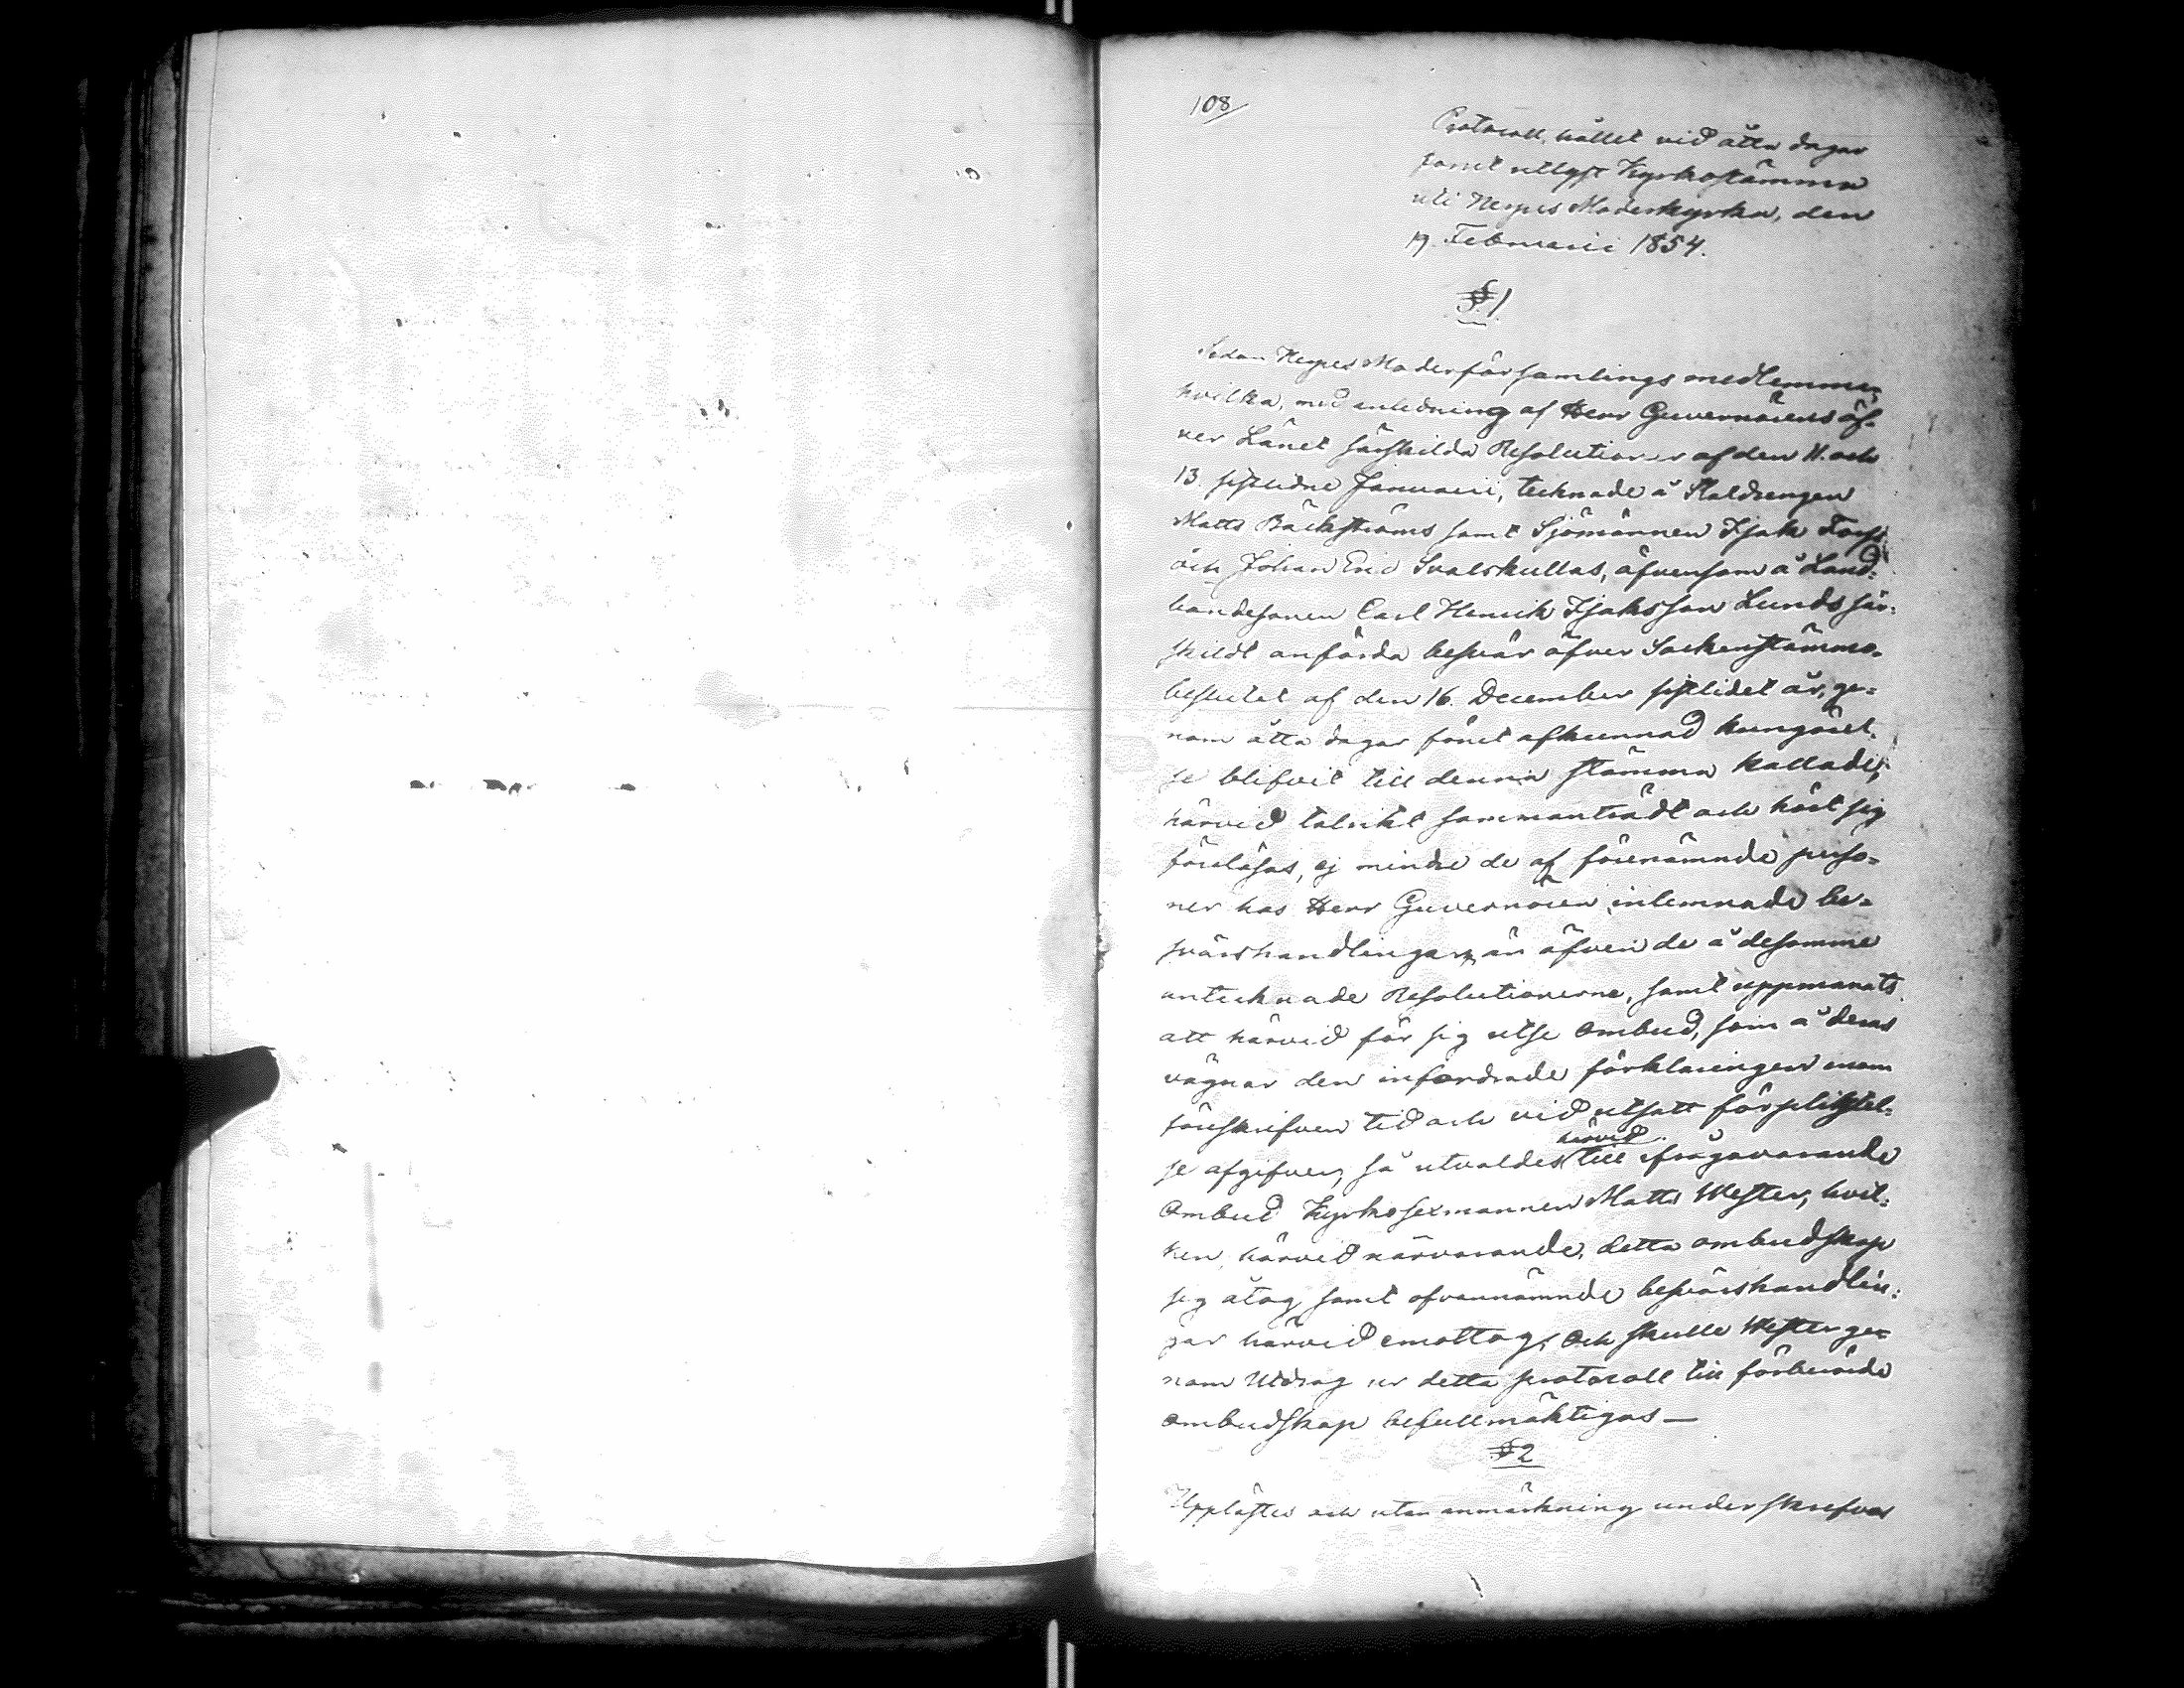 108
Protocoll, hållet vid åtta dagar
förut utlyst Kyrkostämma
uti Nerpes Moderkyrka, den
19. Februarii 1854.
§ 1
Sedan Nerpes Moderförsamlings medlemmar,
hvilka, med anledning af Herr Guvernörens öf-
ver Länet särskilda Resolutioner af den 11. och
13. sistlidne Januarii, tecknade å Stalldrengen
Matts Bäckströms samt Sjömännen Isak Forss
och Johan Eric Svalskullas, äfvensom å Land-
bondesonen Carl Henrik Isaksson Lunds sär-
skildt anförda besvär öfver Sockenstämmo-
beslutet af den 16. December sistlidet år, ge-
nom åtta dagar förut afkunnad kungörel-
se blifvit till denna stämma kallade,
härvid talrikt sammanträdt och hört sig
föreläsas, ej mindre de af förenämnde perso-
ner hos Herr Guvernören inlemnade be-
svärshandlingar, än äfven de å desamme
antecknade Resolutionerne, samt uppmanats
att härvid för sig utse Ombud, som å deras
vägnar den infordrade förklaringen inom
föreskrifven tid och vid utsatt förpligtel-
härvid
se afgifver, så utvaldes till ifrågavarande
Ombud Kyrkosexmannen Matts Wester, hvil-
ken, härvid närvarande, detta ombudskap
sig åtog samt ofvannämnde besvärshandlin-
gar härvid emottog, Och skulle Wester ge-
nom Utdrag ur detta protocoll till förberörde
Ombudskap befullmäktigas —
§ 2
Upplästes och utan anmärkning underskrefvos